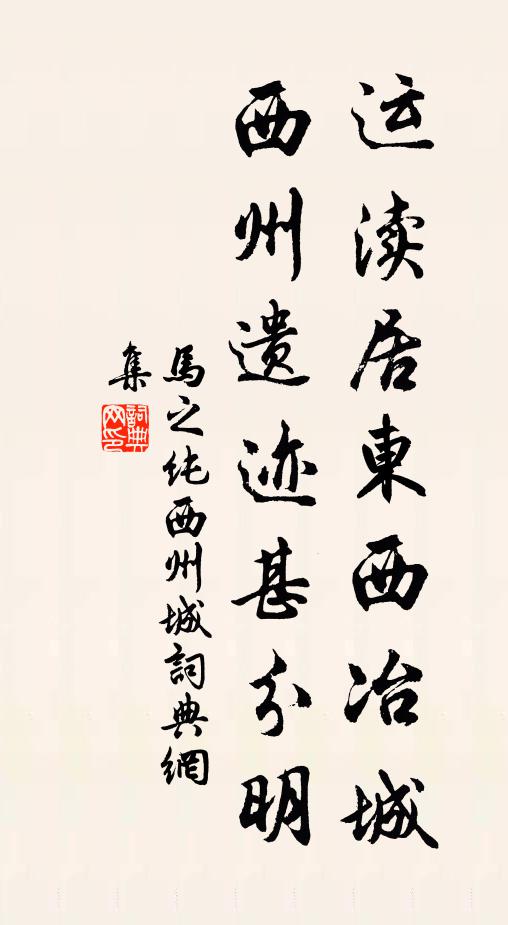 运渎居東西冶城
西州遗迹甚分明
馬之纯西州城詞典網
集
詞典网印